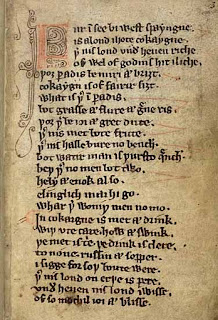 Fur in see bi west spayngne
is a lond ihote cokaygne
þer nis lond vnder heuen riche
of wel of godnis hit iliche
þoȝ paradis be miri & briȝt
cokaygn is of fairir siȝt
what is þer in paradis
bot grasse & flure & grene ris
þoȝ þer be ioi & gret dute
þer nis met bote frute
þer nis halle bure no bench
bot watir man is þursto quench
beþ þer no men bot two
hely & enok also
elinglich mai hi go
whar þer woniþ men no mo
In cokaigne is met & drink
wiþvte care how & swink
þe met is trie þe drink is clere
to none russin & sopper
i sigge for soþ boute were
þer nis lond on erþe is pere
vnder heuen nis lond iwisse
of so mochil ioi & blisse